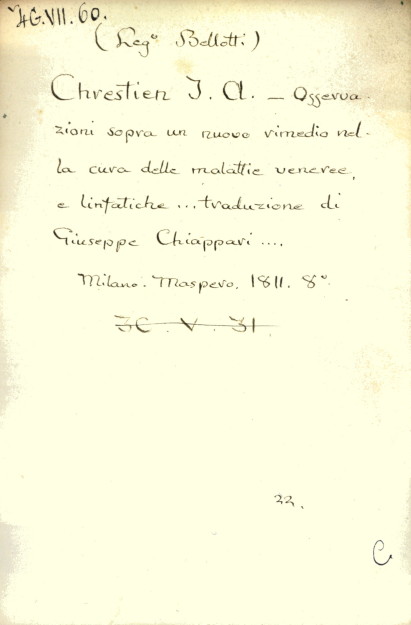 4G.VII.60.
(Leg.º Bellotti)
Chrestien J. A. — Osserva-
zioni sopra un nuovo rimedio nel-
la cura delle malattie veneree,
e linfatiche ... traduzione di
Giuseppe Chiappari ....
Milano. Maspero. 1811. 8º.
3C. V. 31.
22.
C.